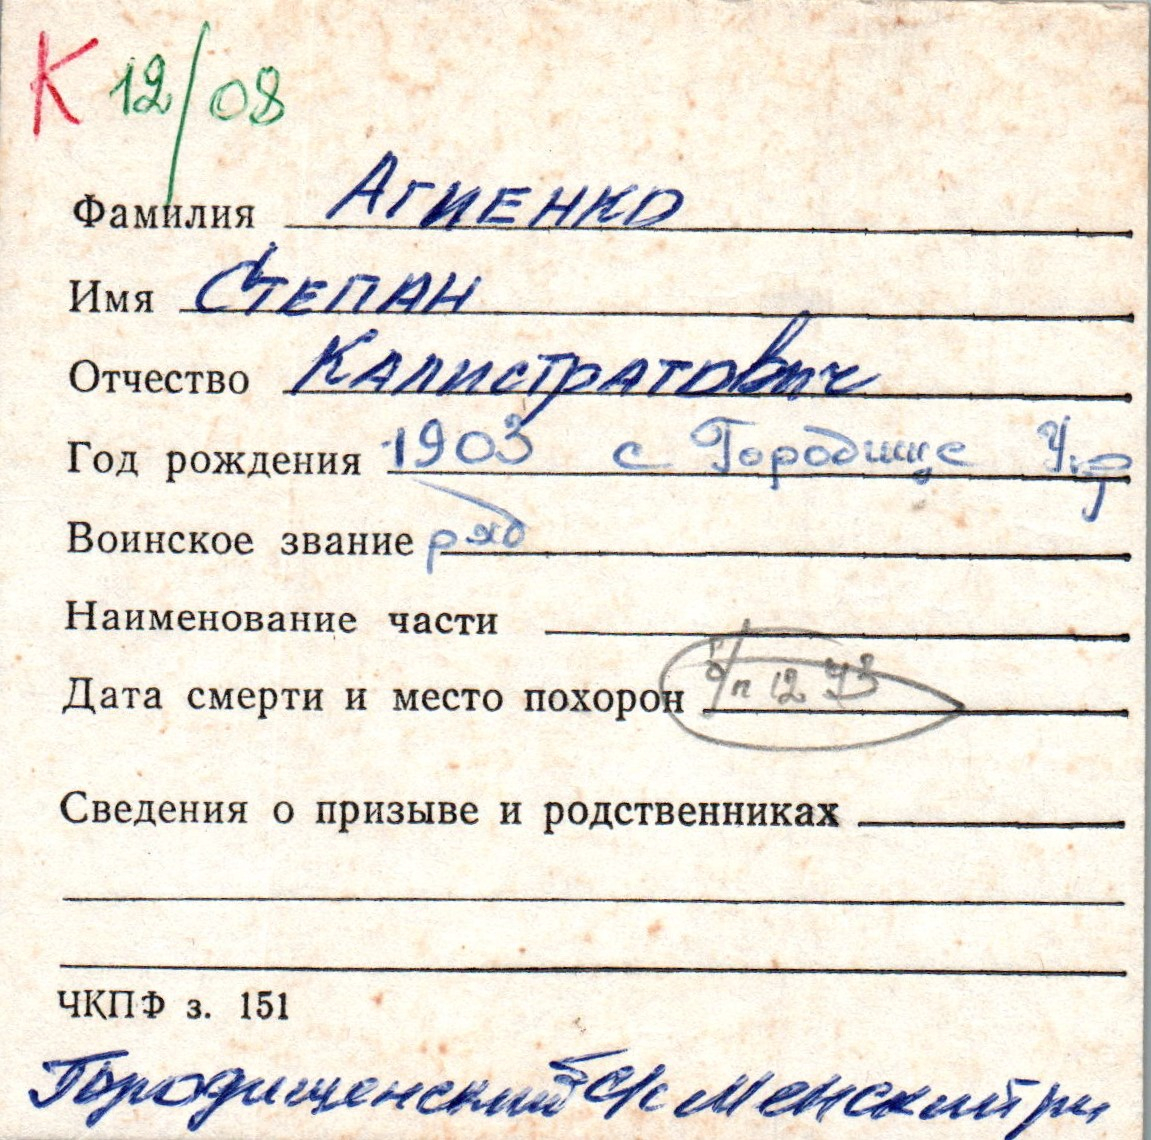 К 12/08
Фамилия Агиенко
Имя Степан
Отчество Калистратович
Год рождения 1903 с Городище Укр
Воинское звание ряд
Наименование части
Дата смерти и место похорон б/п 12 43
Сведения о призыве и родственниках
ЧКПФ з. 151
Городищенский с/с Менский рн